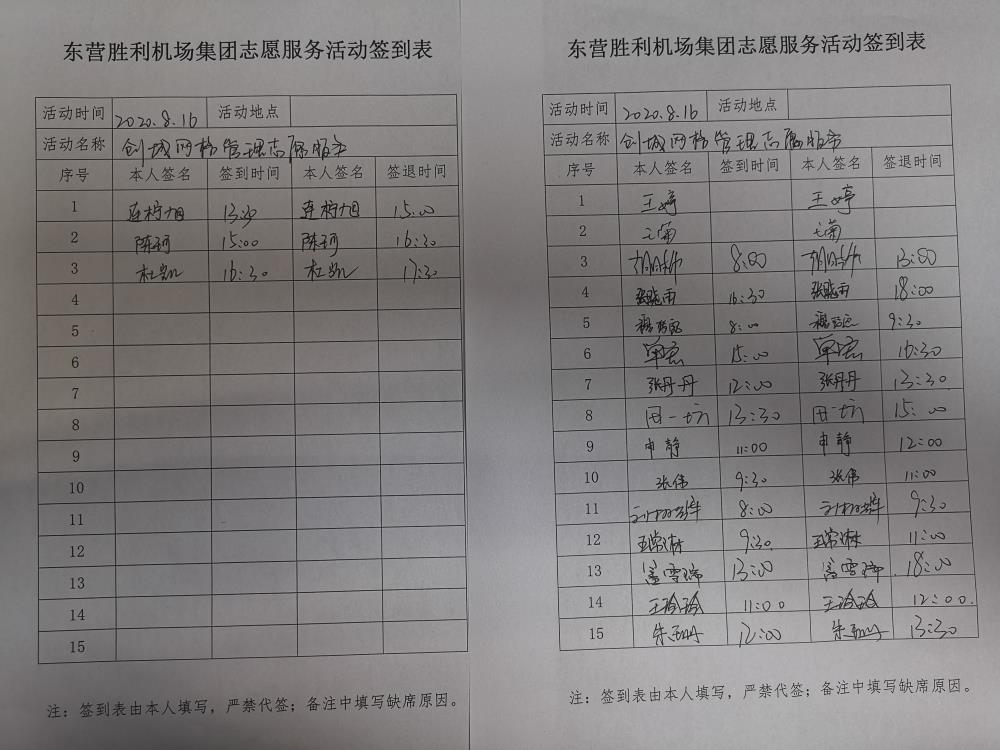 东营胜利机场集团志愿服务活动签到表
活动时间 2020.8.16 活动地点
活动名称 创城网格管理志愿服务
序号 本人签名 签到时间 本人签名 签退时间
1 15.00
2 陈珂 15:00 陈珂 16:30
3 杜凯 16:30 杜凯 17:30
4
5
6
7
8
9
10
11
12
13
14
15
注：签到表由本人填写，严禁代签；备注中填写缺席原因。
东营胜利机场集团志愿服务活动签到表
活动时间 2020.8.16 活动地点
活动名称 创城网格管理志愿服务
序号 本人签名 签到时间 本人签名 签退时间
1 王婷 王婷
2 王菊 王菊
3 8:00 13:00
4 张晓雨 16:30 张晓雨 18:00
5 8:00 9:30
6 15:00 16:30
7 张丹丹 12:00 张丹丹 13:30
8 田一 13:30 田一 15:00
9 申静 11:00 申静 12:00
10 张伟 9:30 张伟 11:00
11 8:00 9:30
12 王常淋 9:30 王常淋 11:00
13 盖雪瑞 13:00 盖雪瑞 18:00
14 王玲玲 11:00 王玲玲 12:00
15 朱 12:00 朱 13:30
注：签到表由本人填写，严禁代签；备注中填写缺席原因。